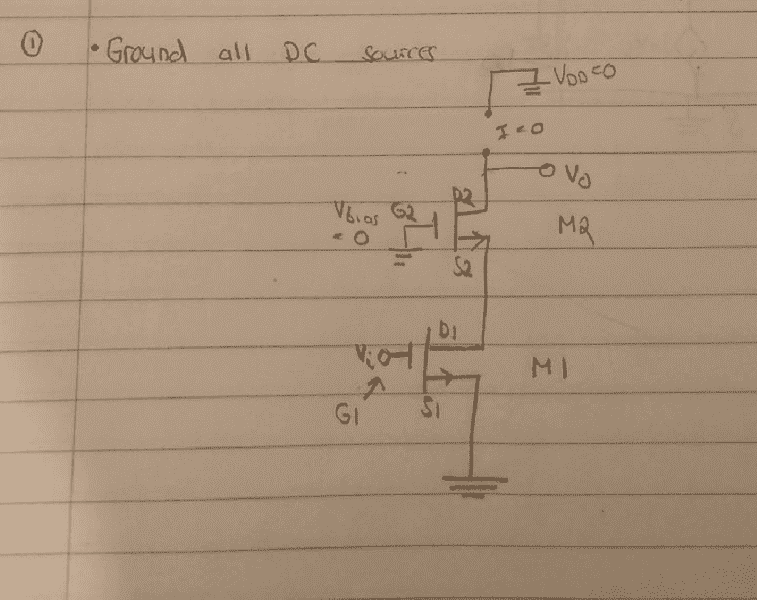 ① • Ground all DC sources
VDD=0
I=0
Vo
D2
Vbias G2
= 0
M2
S2
D1
Vi
M1
G1
S1